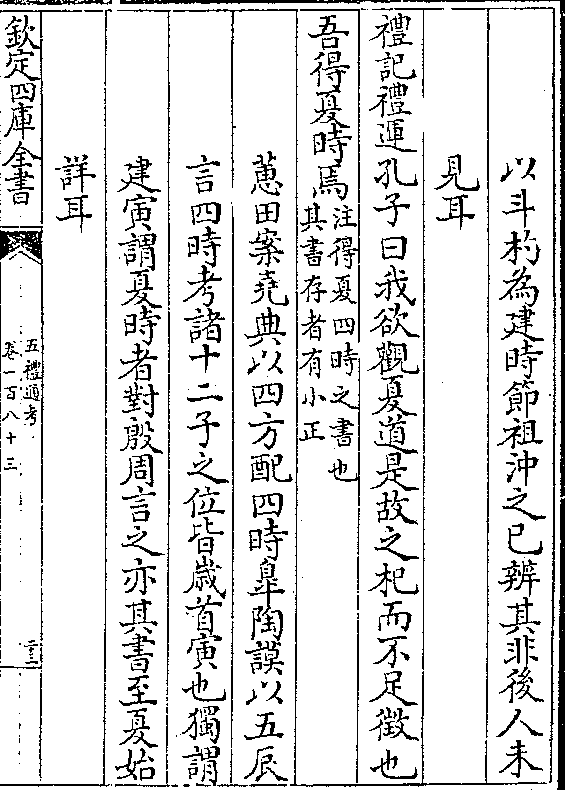 以斗杓為建時節祖沖之已辨其非後人未
見耳
禮記禮運孔子曰我欲觀夏道是故之杞而不足徵也
吾得夏時焉注得夏四時之書也
其書存者有小正
蕙田案堯典以四方配四時臯陶謨以五辰
言四時考諸十二子之位皆歲首寅也獨謂
建寅謂夏時者對殷周言之亦其書至夏始
詳耳
欽定四庫全書
五禮通考
卷一百八十三
三三